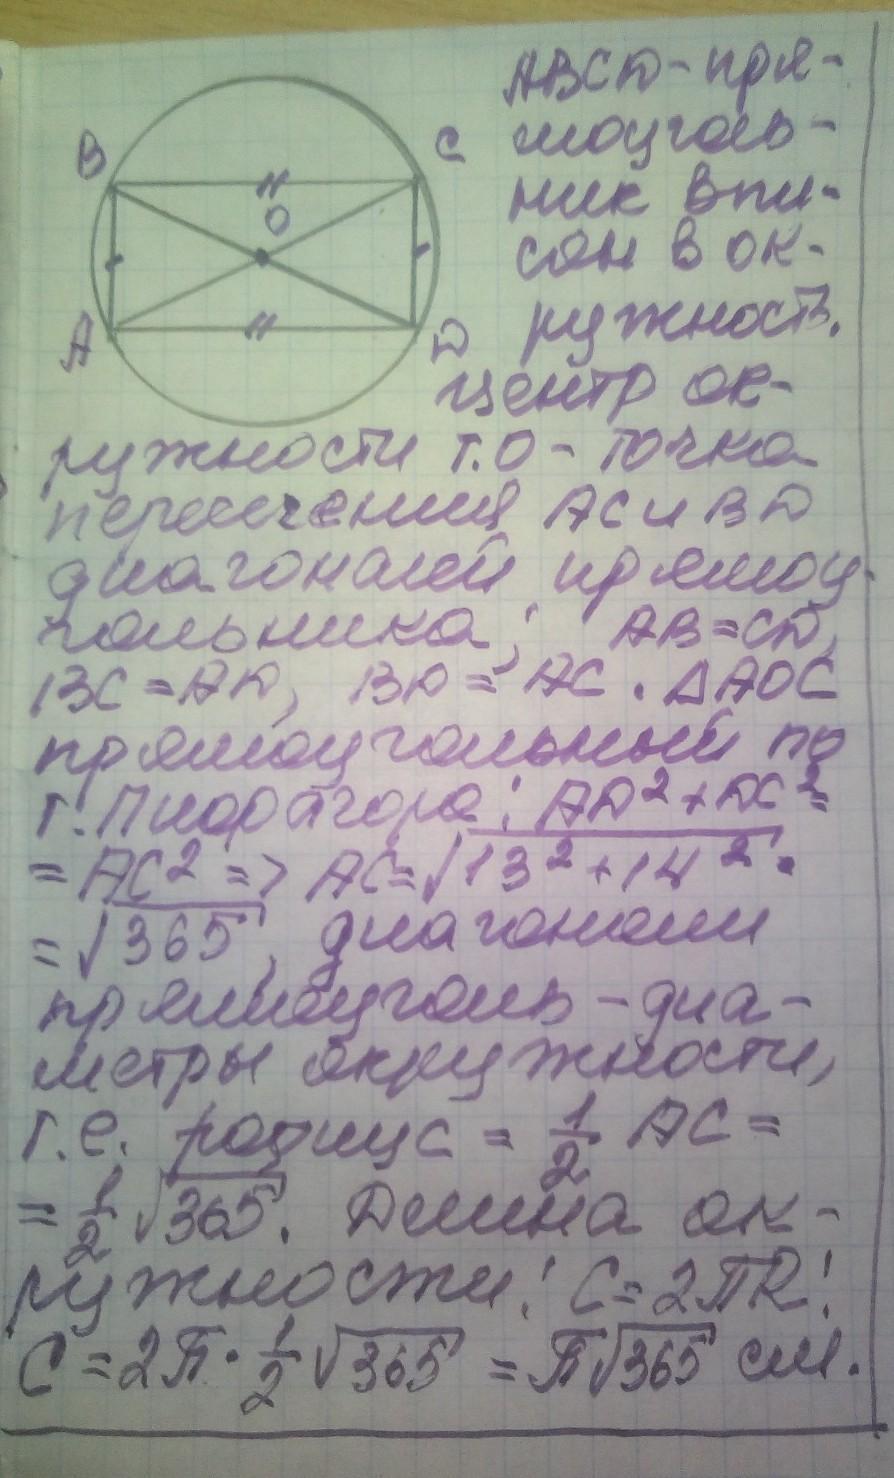 B
C
O
A
D
ABCD - пря-
моуголь-
ник впи-
сан в ок-
ружность.
центр ок-
ружности т.О - точка
пересечения AC и BD
диагоналей прямоу-
гольника; AB = CD,
BC = AD, BD = AC. ΔADC
прямоугольный по
т. Пифагора: AD² + DC² =
= AC² => AC = √13² + 14² =
= √365, диагонали
прямоуголь - диа-
метры окружности,
т.е. радиус = 1/2 AC =
= 1/2 √365. Длина ок-
ружности: C = 2πR;
C = 2π · 1/2 √365 = π√365 см.